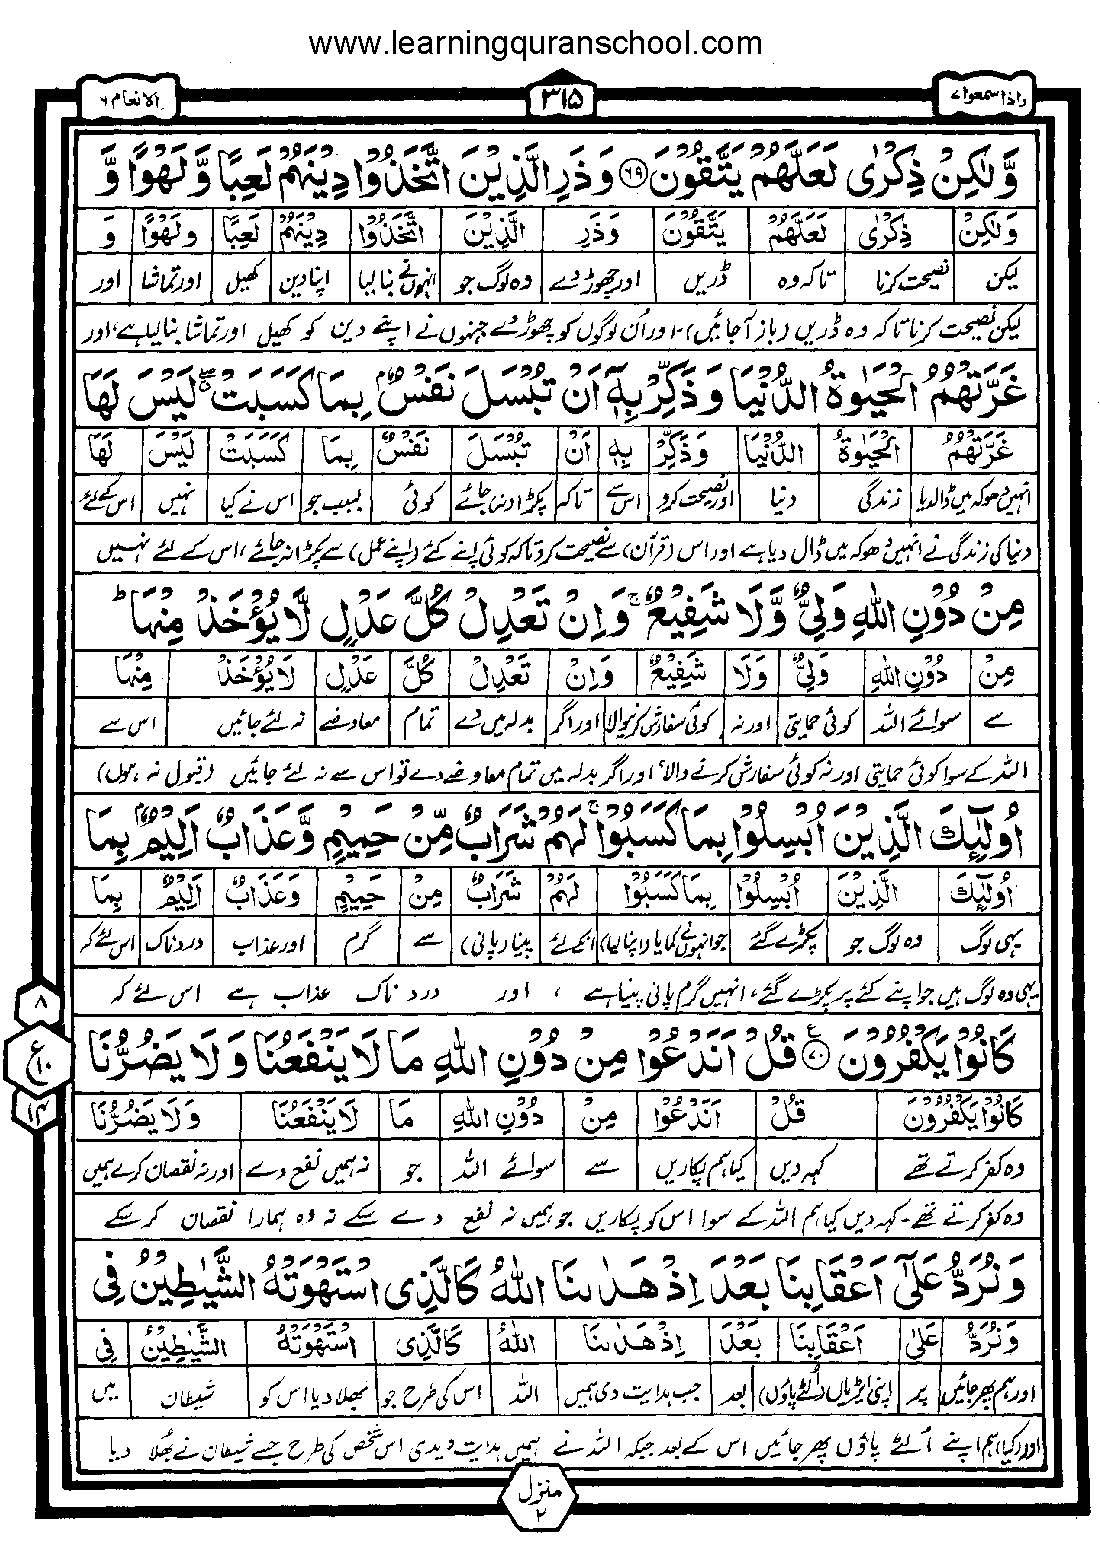 www.learningquranschool.com
واذا سمعوا ۷
۳۱۵
الانعام ۶
وَّلٰكِنْ ذِكْرٰى لَعَلَّهُمْ يَتَّقُوْنَ ۶۹ وَذَرِ الَّذِيْنَ اتَّخَذُوْا دِيْنَهُمْ لَعِبًا وَّلَهْوًا وَّ
وَلٰكِنْ ذِكْرٰى لَعَلَّهُمْ يَتَّقُوْنَ وَذَرِ الَّذِيْنَ اتَّخَذُوْا دِيْنَهُمْ لَعِبًا وَلَهْوًا وَ
لیکن نصیحت کرنا تاکہ وہ ڈریں اور چھوڑ دے وہ لوگ جو انہوں نے بنا لیا اپنا دین کھیل اور تماشا اور
لیکن نصیحت کرنا تاکہ وہ ڈریں (باز آ جائیں)، اور اُن لوگوں کو چھوڑ دے جنہوں نے اپنے دین کو کھیل اور تماشا بنا لیا ہے، اور
غَرَّتْهُمُ الْحَيٰوةُ الدُّنْيَا وَذَكِّرْ بِهٖٓ اَنْ تُبْسَلَ نَفْسٌۢ بِمَا كَسَبَتْ لَيْسَ لَهَا
غَرَّتْهُمُ الْحَيٰوةُ الدُّنْيَا وَذَكِّرْ بِهٖ اَنْ تُبْسَلَ نَفْسٌ بِمَا كَسَبَتْ لَيْسَ لَهَا
انہیں دھوکہ میں ڈالدیا زندگی دنیا اور نصیحت کرو اس سے تاکہ پکڑا نہ جائے کوئی بسبب جو اس نے کیا نہیں اس کے لئے
دنیا کی زندگی نے انہیں دھوکہ میں ڈال دیا ہے اور اس (قرآن) سے نصیحت کرو تاکہ کوئی اپنے کئے (اپنے عمل) سے پکڑا نہ جائے، اس کے لئے نہیں
مِنْ دُوْنِ اللّٰهِ وَلِيٌّ وَّلَا شَفِيْعٌ ۚ وَاِنْ تَعْدِلْ كُلَّ عَدْلٍ لَّا يُؤْخَذْ مِنْهَا ؕ
مِنْ دُوْنِ اللّٰهِ وَلِيٌّ وَلَا شَفِيْعٌ وَاِنْ تَعْدِلْ كُلَّ عَدْلٍ لَا يُؤْخَذْ مِنْهَا
سے سوائے اللہ کوئی حمایتی اور نہ کوئی سفارش کرنیوالا اور اگر بدلہ میں دے تمام معاوضے نہ لئے جائیں اس سے
اللہ کے سوا کوئی حمایتی اور نہ کوئی سفارش کرنے والا، اور اگر بدلہ میں تمام معاوضے دے تو اس سے نہ لئے جائیں (قبول نہ ہوں)
اُولٰٓئِكَ الَّذِيْنَ اُبْسِلُوْا بِمَا كَسَبُوْا ۚ لَهُمْ شَرَابٌ مِّنْ حَمِيْمٍ وَّعَذَابٌ اَلِيْمٌۢ بِمَا
اُولٰٓئِكَ الَّذِيْنَ اُبْسِلُوْا بِمَا كَسَبُوْا لَهُمْ شَرَابٌ مِنْ حَمِيْمٍ وَعَذَابٌ اَلِيْمٌ بِمَا
یہی لوگ وہ لوگ جو پکڑے گئے جو انہوں نے کمایا (اپنا کیا) انکے لئے پینا (پانی) سے گرم اور عذاب دردناک اس لئے کہ
یہی وہ لوگ ہیں جو اپنے کئے پر پکڑے گئے، انہیں گرم پانی پینا ہے، اور دردناک عذاب ہے اس لئے کہ
۸
ع
۱۰
۱۴
كَانُوْا يَكْفُرُوْنَ ۷۰ قُلْ اَنَدْعُوْا مِنْ دُوْنِ اللّٰهِ مَا لَا يَنْفَعُنَا وَلَا يَضُرُّنَا
كَانُوْا يَكْفُرُوْنَ قُلْ اَنَدْعُوْا مِنْ دُوْنِ اللّٰهِ مَا لَا يَنْفَعُنَا وَلَا يَضُرُّنَا
وہ کفر کرتے تھے کہہ دیں کیا ہم پکاریں سے سوائے اللہ جو نہ ہمیں نفع دے اور نہ نقصان کرے ہمیں
وہ کفر کرتے تھے۔ کہہ دیں کیا ہم اللہ کے سوا اس کو پکاریں جو ہمیں نہ نفع دے سکے نہ وہ ہمارا نقصان کر سکے
وَنُرَدُّ عَلٰٓى اَعْقَابِنَا بَعْدَ اِذْ هَدٰىنَا اللّٰهُ كَالَّذِى اسْتَهْوَتْهُ الشَّيٰطِيْنُ فِى
وَنُرَدُّ عَلٰى اَعْقَابِنَا بَعْدَ اِذْ هَدٰىنَا اللّٰهُ كَالَّذِى اسْتَهْوَتْهُ الشَّيٰطِيْنُ فِى
اور ہم پھر جائیں پر اپنی ایڑیاں (الٹے پاؤں) بعد جب ہدایت دی ہمیں اللہ اس کی طرح جو بھلا دیا اس کو شیطان میں
اور (کیا) ہم اپنے اُلٹے پاؤں پھر جائیں اس کے بعد جبکہ اللہ نے ہمیں ہدایت دیدی اس شخص کی طرح جسے شیطان نے بھلا دیا
منزل ۲